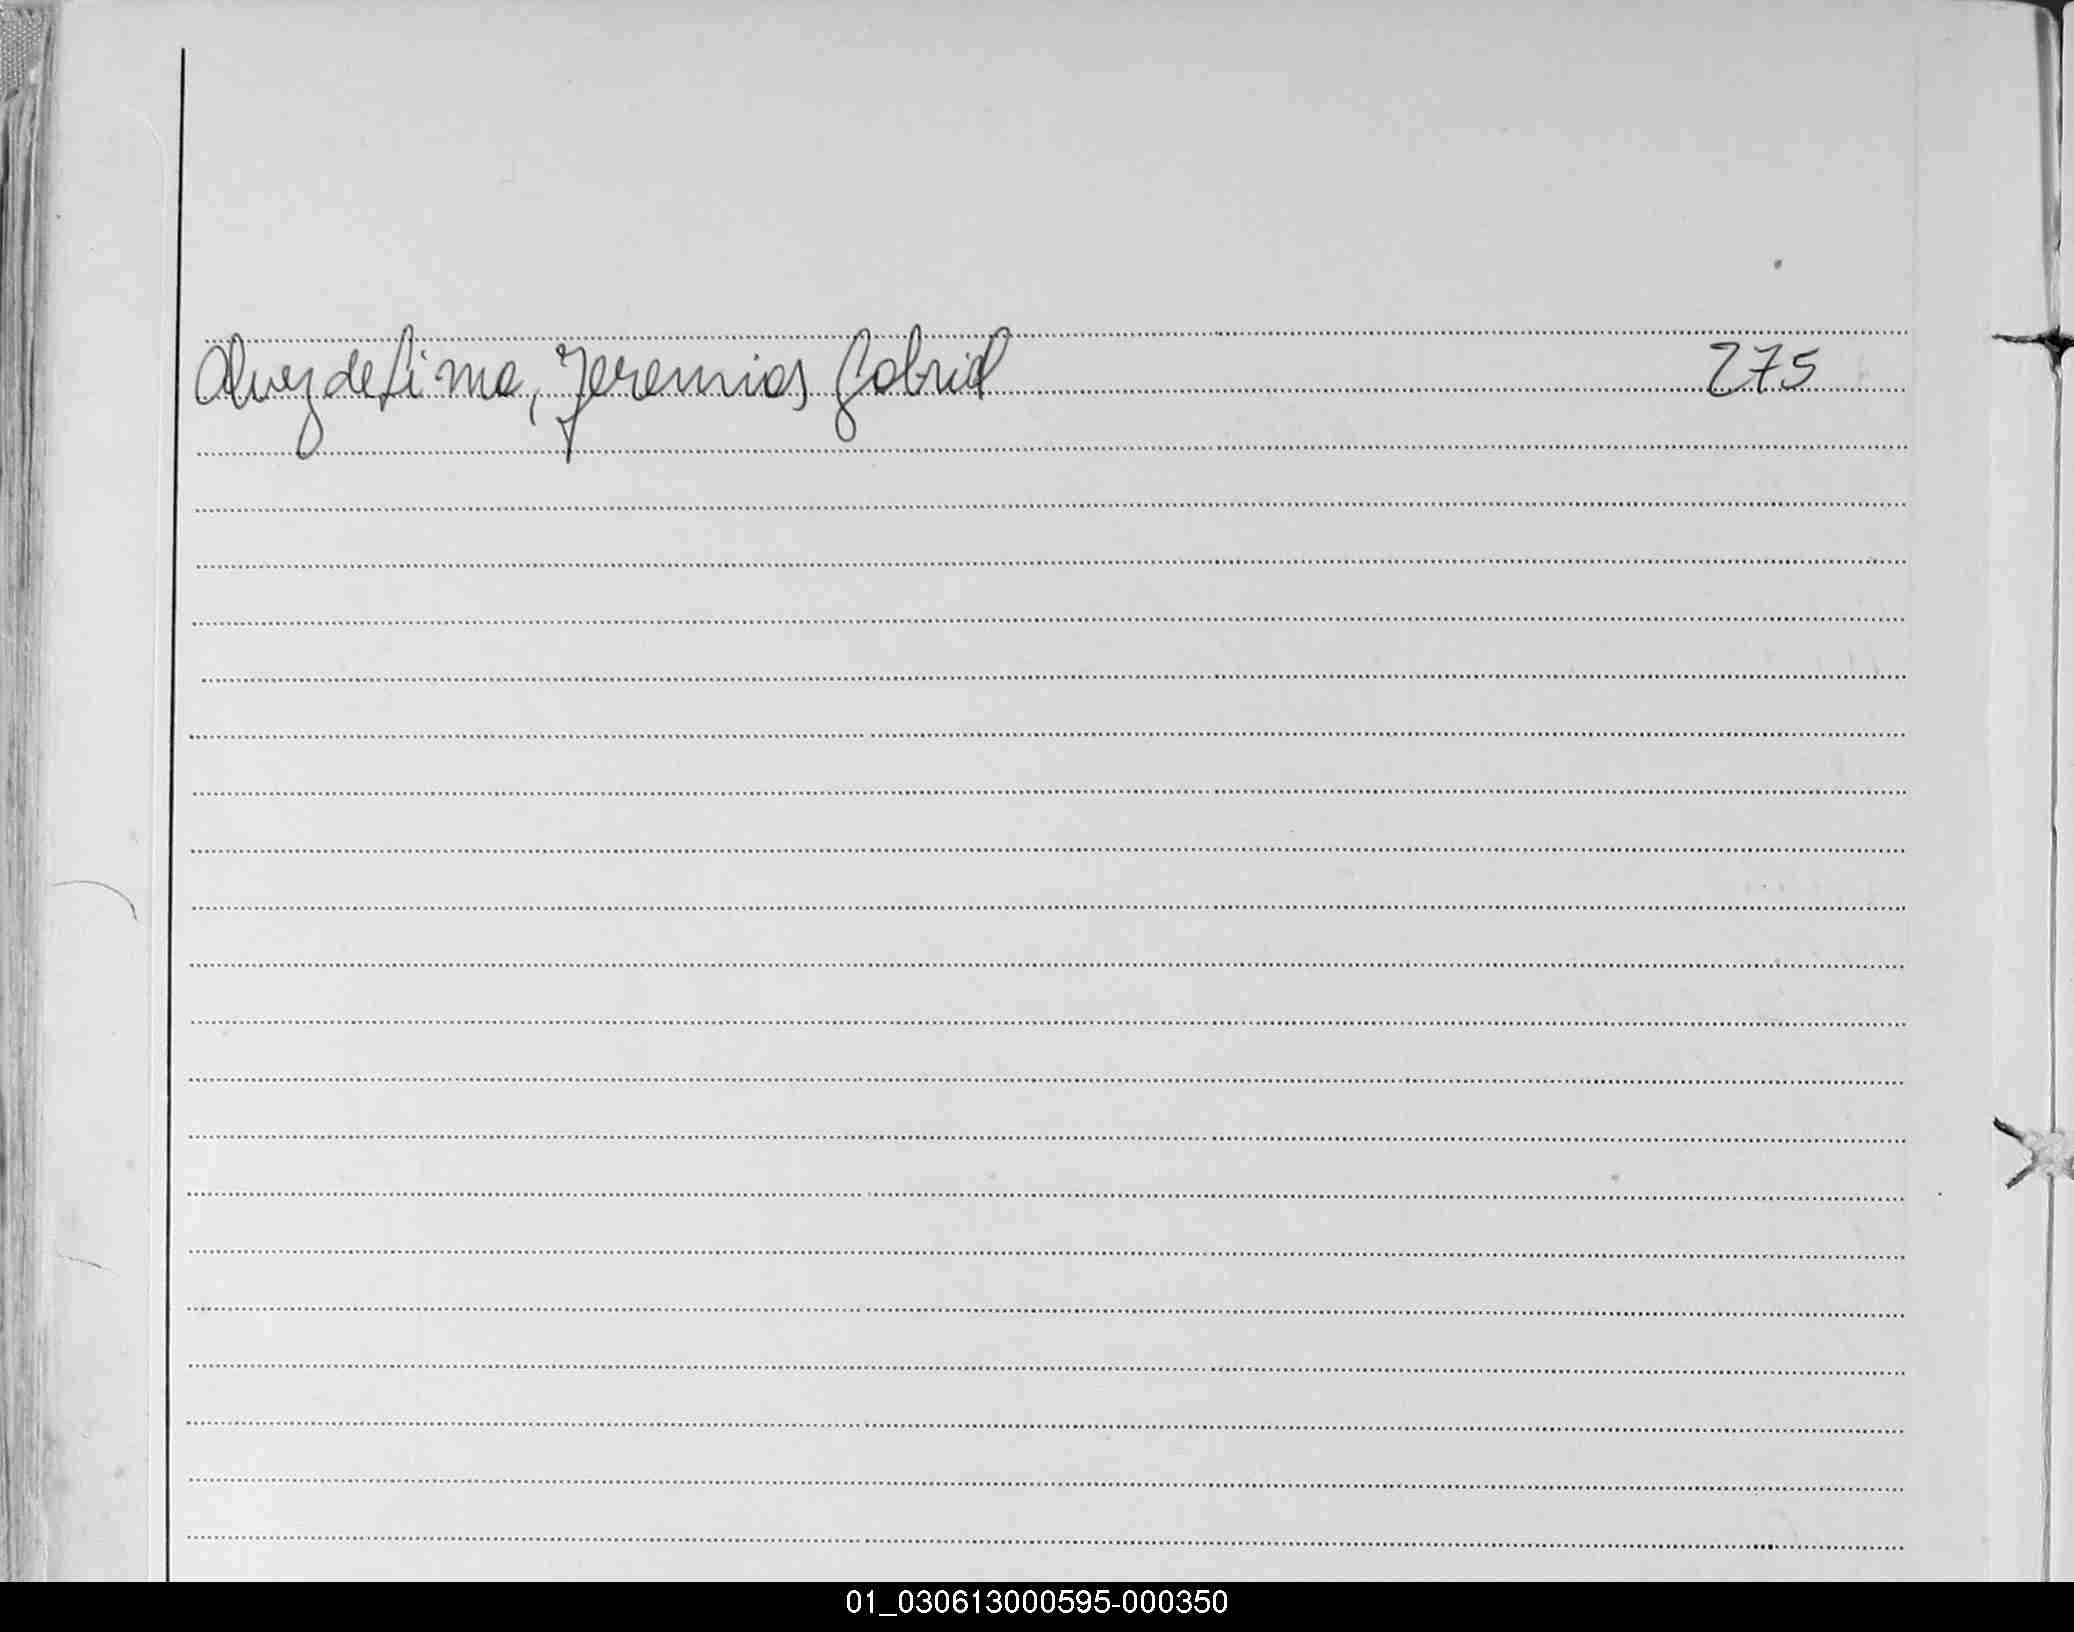 Alvez de Lima, Jeremias Gabriel 275
01_030613000595-000350